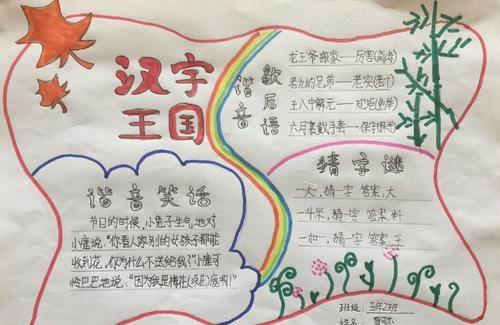 汉字
王国
谐音
歇后语
龙王爷搬家——厉害(离海)
老九的兄弟——老实(老十)
王八中解元——规矩(龟举)
六月裹戴手套——保守(保手)
猜字谜
一人,猜一字 答案:大
一斗米,猜一字 答案:料
一加一,猜一字 答案:王
谐音笑话
节日的时候,小兔子生气地对
小鹿说:“你看人家别的女孩子都能
收到花,你为什么不送给我?”小鹿可
怜巴巴地说:“因为我是梅花(没花)鹿啊!”
班级:
姓名: